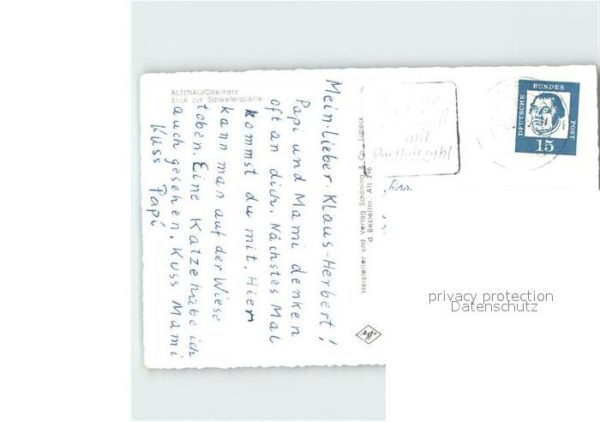 ALTENAU/Oberharz
Blick zur Schwefelquelle
Mein lieber Klaus-Herbert!
Papi und Mami denken
oft an dich. Nächstes Mal
kommst du mit. Hier
kann man auf der Wiese
toben. Eine Katze habe ich
auch gesehen. Kuss Mami
Kuss Papi
Hersteller und Verlag Schöning & Co., Lübeck
Bestellnr. Alt
mit
Postleitzahl
DEUTSCHE
BUNDES
POST
15
privacy protection
Datenschutz